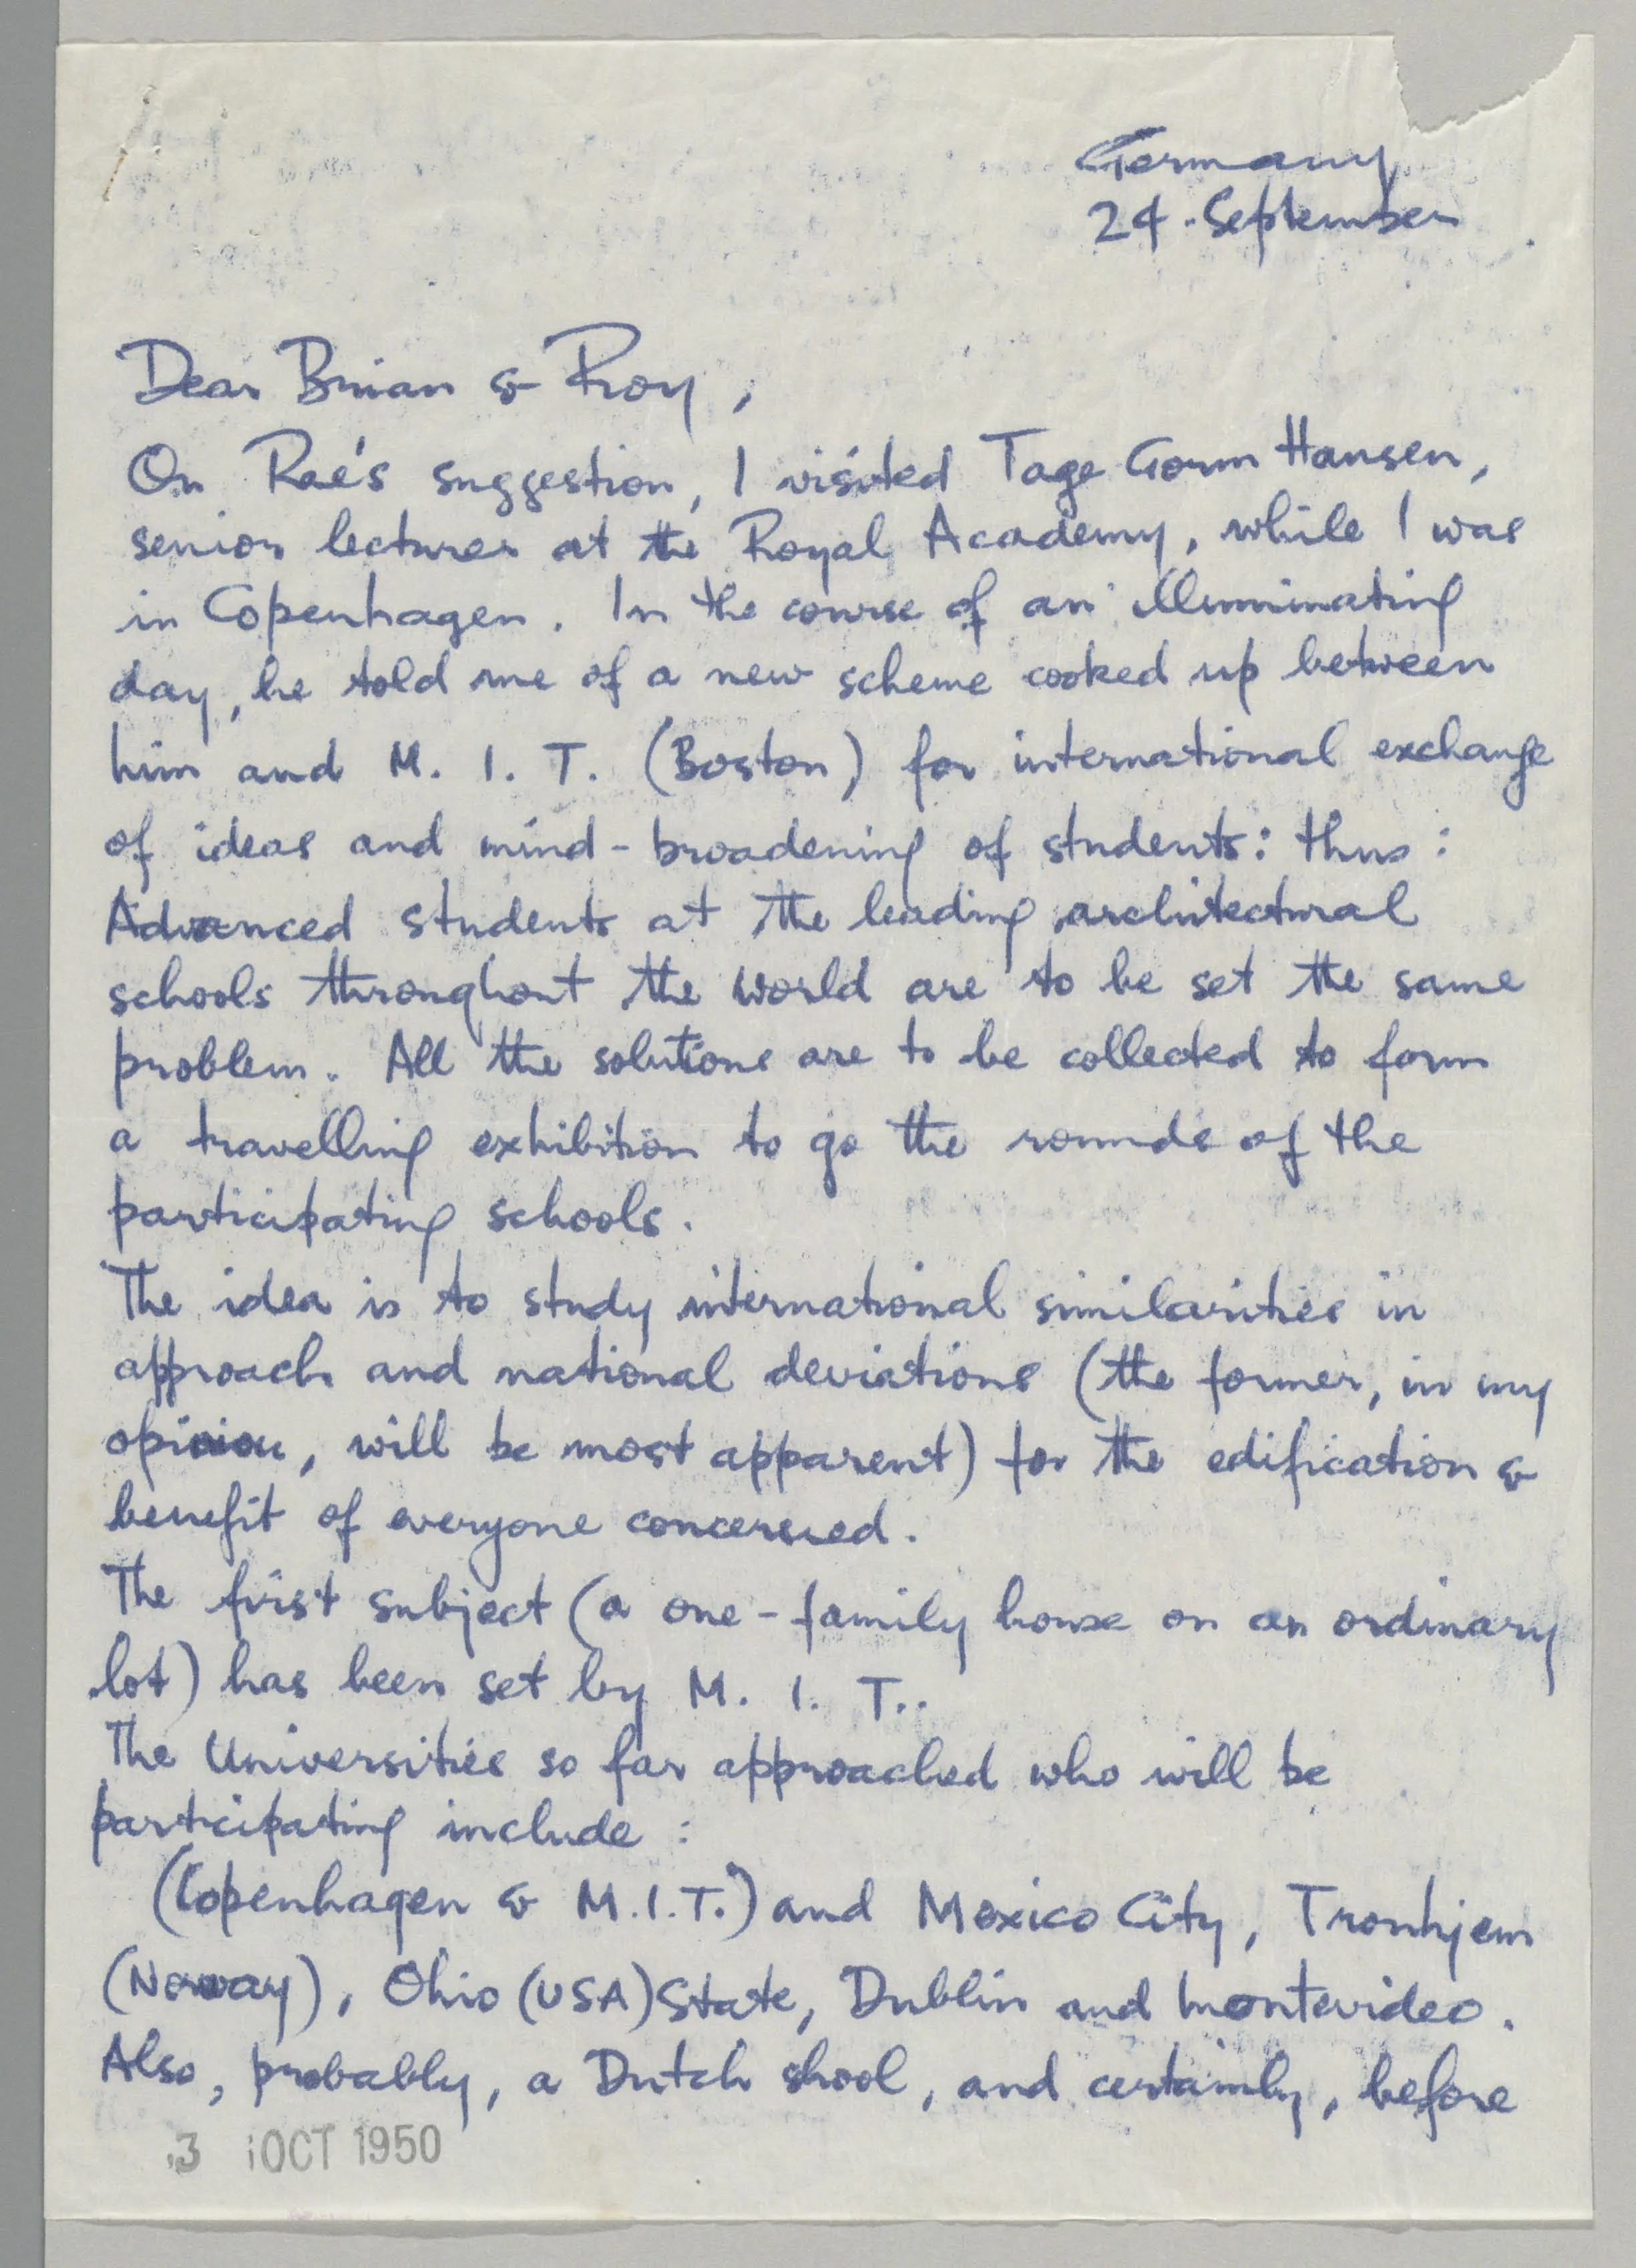 Germany
24. September
Dear Brian & Roy,
On Rae's suggestion, I visited Tage Gorm Hansen,
senior lecturer at the Royal Academy, while I was
in Copenhagen. In the course of an illuminating
day, he told me of a new scheme cooked up between
him and M. I. T. (Boston) for international exchange
of ideas and mind-broadening of students: thus:
Advanced students at the leading architectural
schools throughout the world are to be set the same
problem. All the solutions are to be collected to form
a travelling exhibition to go the rounds of the
participating schools.
The idea is to study international similarities in
approach and national deviations (the former, in my
opinion, will be most apparent) for the edification &
benefit of everyone concerned.
The first subject (a one-family house on an ordinary
lot) has been set by M. I. T..
The Universities so far approached who will be
participating include :
(Copenhagen & M.I.T.) and Mexico City, Tronhjem
(Norway), Ohio (USA) State, Dublin and Montevideo.
Also, probably, a Dutch shool, and certainly, before
3 OCT 1950